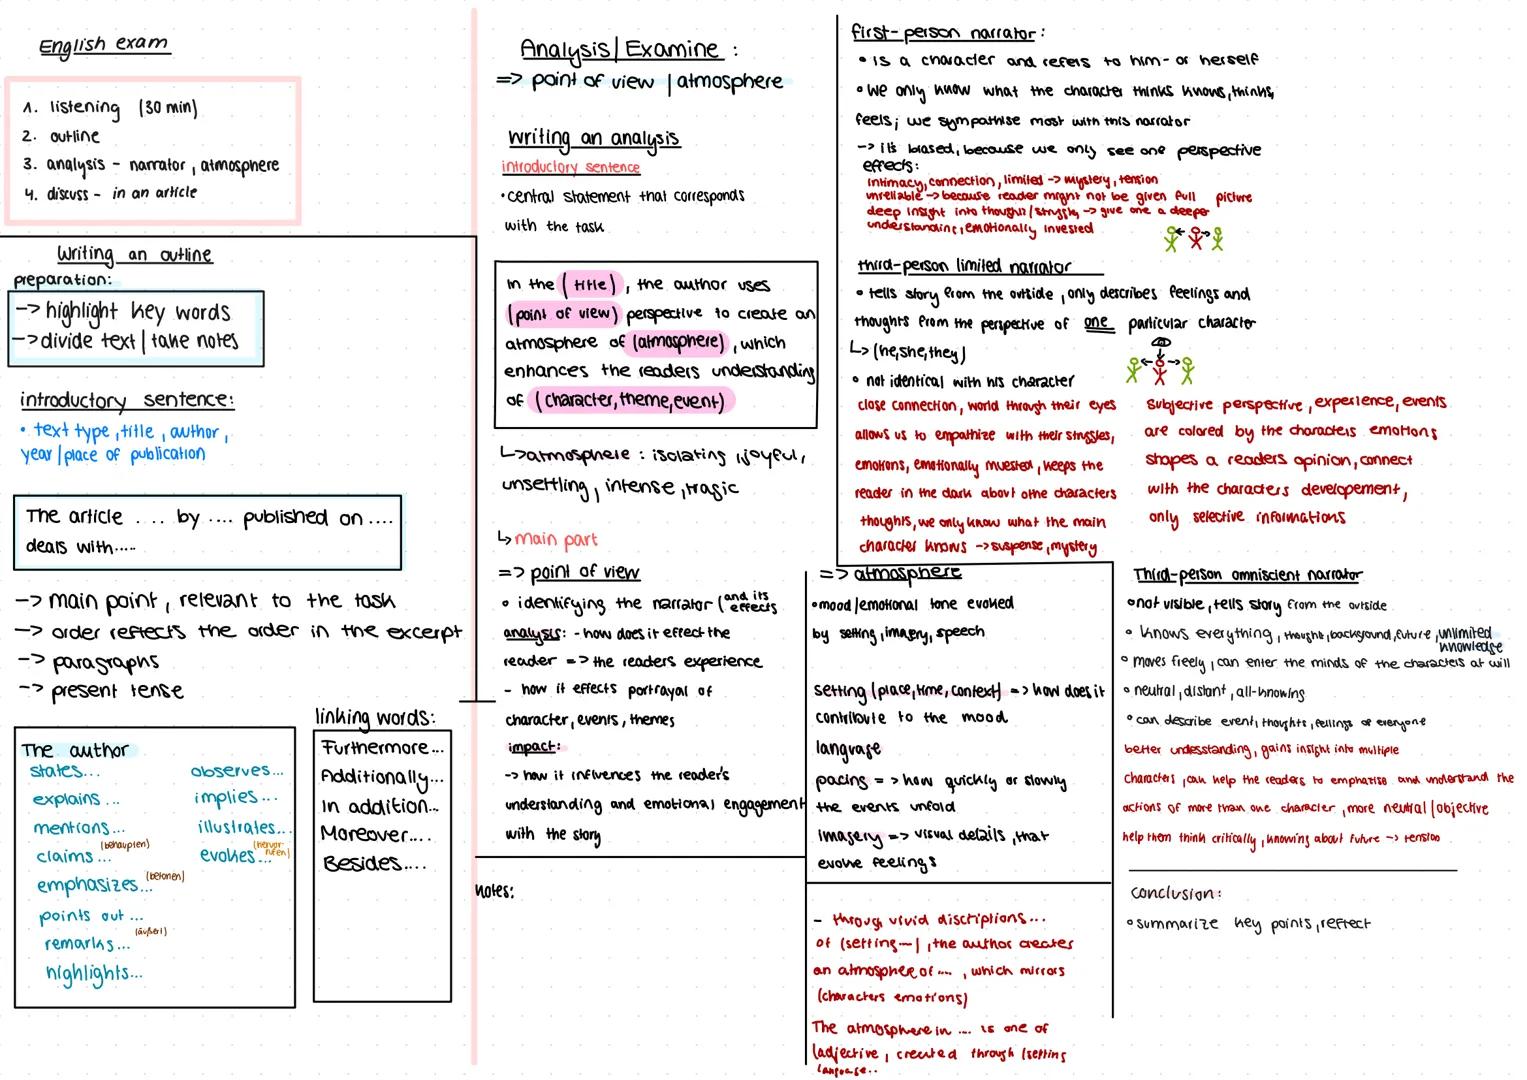 English exam
1. listening (30 min)
2. outline
3. analysis - narrator, atmosphere
4. discuss - in an article
Writing an outline
preparation:
-> highlight key words
-> divide text | take notes
introductory sentence:
• text type, title, author,
year | place of publication
The article .... by .... published on ....
deals with.....
-> main point, relevant to the task
-> order reflects the order in the excerpt
-> paragraphs
-> present tense
The author
states...
explains ...
mentions...
claims ... (behaupten)
emphasizes... (betonen)
points out ...
remarks... (äußert)
highlights...
observes...
implies...
illustrates...
evokes... (hervorrufen)
linking words:
Furthermore...
Additionally...
In addition...
Moreover....
Besides....
Analysis | Examine :
=> point of view | atmosphere
Writing an analysis
introductory sentence
• central statement that corresponds
with the task
In the (title), the author uses
(point of view) perspective to create an
atmosphere of (atmosphere), which
enhances the readers understanding
of (character, theme, event)
↳ atmosphere : isolating, joyful,
unsettling, intense, tragic
↳ main part
=> point of view
• identifying the narrator (and its
effects
analysis: - how does it effect the
reader => the readers experience
- how it effects portrayal of
character, events, themes
impact:
-> how it influences the reader's
understanding and emotional engagement
with the story
notes:
first-person narrator:
• is a character and refers to him- or herself
• we only know what the character thinks knows, thinks,
feels; we sympathise most with this narrator
-> it's biased, because we only see one perspective
effects:
intimacy, connection, limited -> mystery, tension
unreliable -> because reader might not be given full picture
deep insight into thoughts/struggles -> give one a deeper
understanding, emotionally invested
third-person limited narrator
• tells story from the outside, only describes feelings and
thoughts from the perspective of one particular character
↳ (he, she, they)
• not identical with his character
close connection, world through their eyes
allows us to empathize with their struggles,
emotions, emotionally invested, keeps the
reader in the dark about othe characters
thoughts, we only know what the main
character knows -> suspense, mystery
Subjective perspective, experience, events
are colored by the characters emotions
shapes a readers opinion, connect
with the characters developement,
only selective informations
=> atmosphere
• mood/emotional tone evoked
by setting, imagery, speech
setting (place, time, context) => how does it
contribute to the mood
language
pacing => how quickly or slowly
the events unfold
imagery => visual details, that
evoke feelings
- through vivid discriptions...
of (setting...), the author creates
an atmosphere of ...., which mirrors
(characters emotions)
The atmosphere in .... is one of
(adjective, created through (setting
language..
Third-person omniscient narrator
• not visible, tells story from the outside
• knows everything, thoughts, background, future, unlimited
knowledge
• moves freely, can enter the minds of the characters at will
• neutral, distant, all-knowing
• can describe event, thoughts, feelings of everyone
better undesstanding, gains insight into multiple
characters, can help the readers to emphatise and understand the
actions of more than one character, more neutral | objective
help them think critically, knowing about future -> tension
conclusion:
• summarize key points, reflect